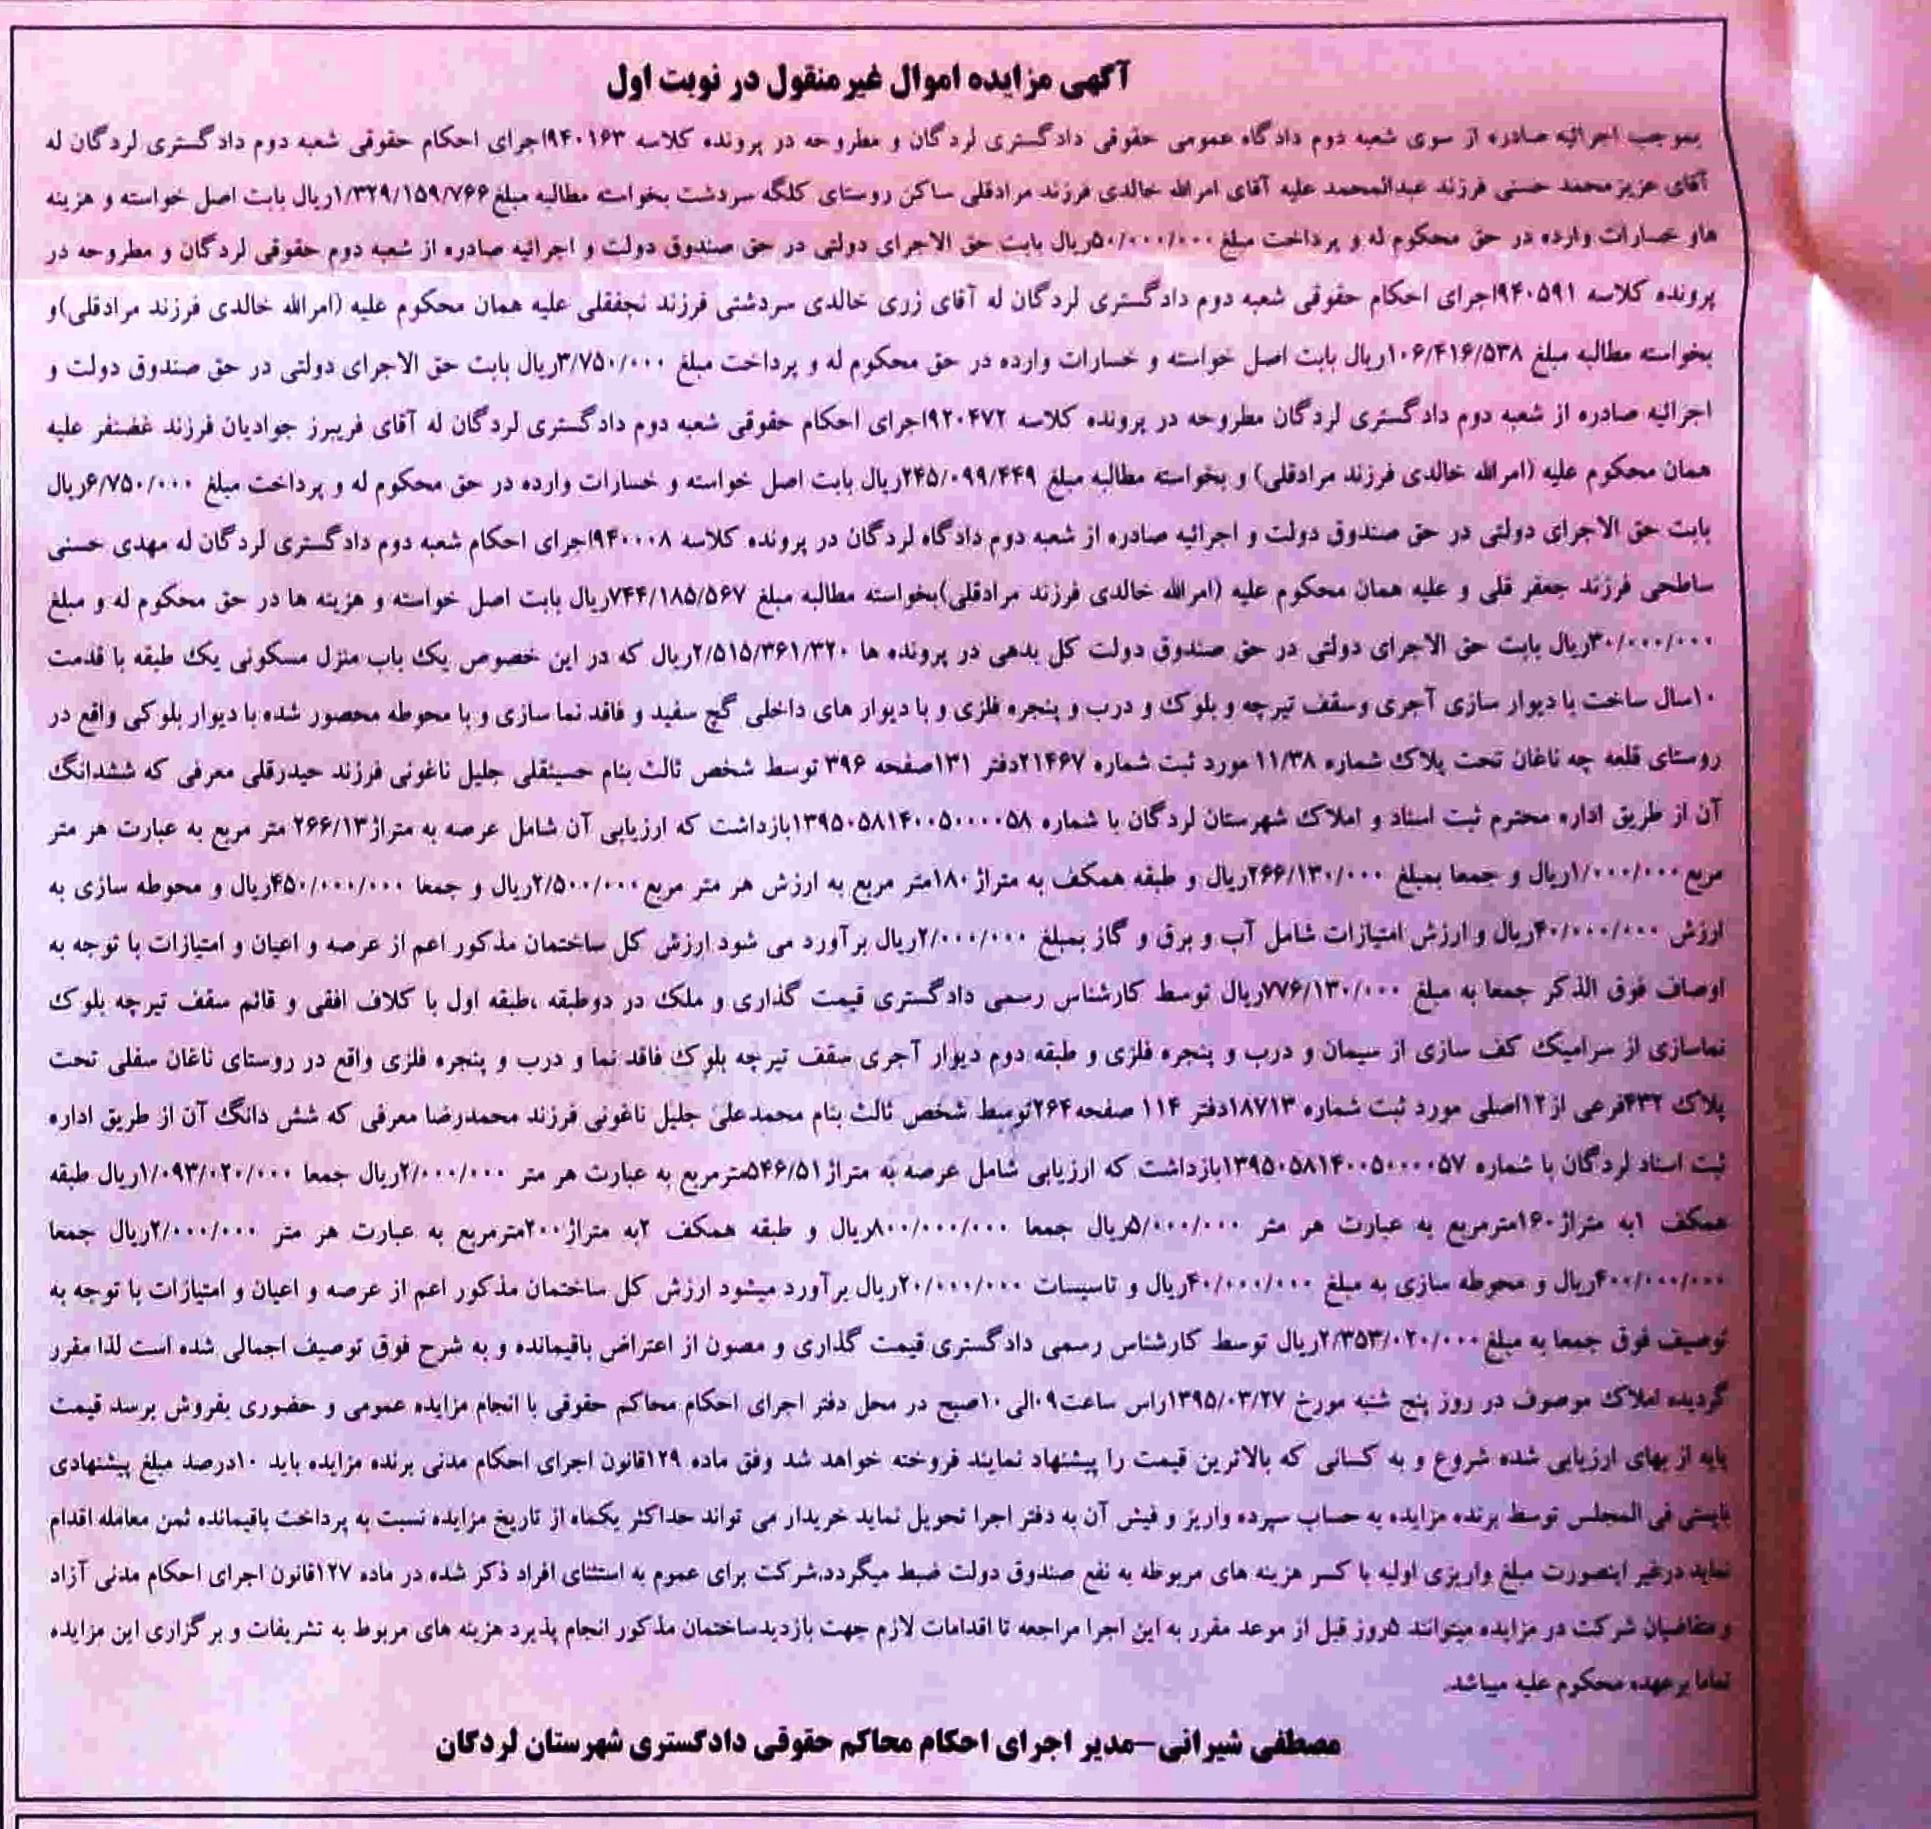 آگهی مزایده اموال غیرمنقول در نوبت اول
بموجب اجرائیه صادره از سوی شعبه دوم دادگاه عمومی حقوقی دادگستری لردگان و مطروحه در پرونده کلاسه ۹۴۰۱۶۳اجرای احکام حقوقی شعبه دوم دادگستری لردگان له
آقای عزیزمحمد حسنی فرزند عبدالمحمد علیه آقای امرالله خالدی فرزند مرادقلی ساکن روستای کلگه سردشت بخواسته مطالبه مبلغ۱/۳۲۹/۱۵۹/۷۶۶ریال بابت اصل خواسته و هزینه
هاو خسارات وارده در حق محکوم له و پرداخت مبلغ ۵۰/۰۰۰/۰۰۰ریال بابت حق الاجرای دولتی در حق صندوق دولت و اجرائیه صادره از شعبه دوم حقوقی لردگان و مطروحه در
پرونده کلاسه ۹۴۰۵۹۱اجرای احکام حقوقی شعبه دوم دادگستری لردگان له آقای زری خالدی سردشتی فرزند نجفقلی علیه همان محکوم علیه (امرالله خالدی فرزند مرادقلی)و
بخواسته مطالبه مبلغ ۱۰۶/۴۱۶/۵۳۸ریال بابت اصل خواسته و خسارات وارده در حق محکوم له و پرداخت مبلغ ۳/۷۵۰/۰۰۰ریال بابت حق الاجرای دولتی در حق صندوق دولت و
اجرائیه صادره از شعبه دوم دادگستری لردگان مطروحه در پرونده کلاسه ۹۲۰۴۷۲اجرای احکام حقوقی شعبه دوم دادگستری لردگان له آقای فریبرز جوادیان فرزند غضنفر علیه
همان محکوم علیه (امرالله خالدی فرزند مرادقلی) و بخواسته مطالبه مبلغ ۲۴۵/۰۹۹/۴۴۹ریال بابت اصل خواسته و خسارات وارده در حق محکوم له و پرداخت مبلغ ۶/۷۵۰/۰۰۰ریال
بابت حق الاجرای دولتی در حق صندوق دولت و اجرائیه صادره از شعبه دوم دادگاه لردگان در پرونده کلاسه ۹۴۰۰۰۸اجرای احکام شعبه دوم دادگستری لردگان له مهدی حسنی
ساطحی فرزند جعفر قلی و علیه همان محکوم علیه (امرالله خالدی فرزند مرادقلی)بخواسته مطالبه مبلغ ۷۴۴/۱۸۵/۵۶۷ریال بابت اصل خواسته و هزینه ها در حق محکوم له و مبلغ
۳۰/۰۰۰/۰۰۰ریال بابت حق الاجرای دولتی در حق صندوق دولت کل بدهی در پرونده ها ۲/۵۱۵/۳۶۱/۳۲۰ریال که در این خصوص یک باب منزل مسکونی یک طبقه با قدمت
۱۰سال ساخت با دیوار سازی آجری وسقف تیرچه و بلوک و درب و پنجره فلزی و با دیوار های داخلی گچ سفید و فاقد نما سازی و با محوطه محصور شده با دیوار بلوکی واقع در
روستای قلعه چه ناغان تحت پلاک شماره ۱۱/۳۸ مورد ثبت شماره ۲۱۴۶۷دفتر ۱۳۱صفحه ۳۹۶ توسط شخص ثالث بنام حسینقلی جلیل ناغونی فرزند حیدرقلی معرفی که ششدانگ
آن از طریق اداره محترم ثبت اسناد و املاک شهرستان لردگان با شماره ۱۳۹۵۰۵۸۱۴۰۰۵۰۰۰۰۵۸بازداشت که ارزیابی آن شامل عرصه به متراژ۲۶۶/۱۳ متر مربع به عبارت هر متر
مربع ۱/۰۰۰/۰۰۰ریال و جمعا بمبلغ ۲۶۶/۱۳۰/۰۰۰ریال و طبقه همکف به متراژ ۱۸۰متر مربع به ارزش هر متر مربع ۲/۵۰۰/۰۰۰ریال و جمعا ۴۵۰/۰۰۰/۰۰۰ریال و محوطه سازی به
ارزش ۴۰/۰۰۰/۰۰۰ریال و ارزش امتیازات شامل آب و برق و گاز بمبلغ ۲/۰۰۰/۰۰۰ریال برآورد می شود ارزش کل ساختمان مذکور اعم از عرصه و اعیان و امتیازات با توجه به
اوصاف فوق الذکر جمعا به مبلغ ۷۷۶/۱۳۰/۰۰۰ریال توسط کارشناس رسمی دادگستری قیمت گذاری و ملک در دوطبقه ،طبقه اول با کلاف افقی و قائم سقف تیرچه بلوک
نماسازی از سرامیک کف سازی از سیمان و درب و پنجره فلزی و طبقه دوم دیوار آجری سقف تیرچه بلوک فاقد نما و درب و پنجره فلزی واقع در روستای ناغان سفلی تحت
پلاک ۴۳۲فرعی از۱۲اصلی مورد ثبت شماره ۱۸۷۱۳دفتر ۱۱۴ صفحه۲۶۴توسط شخص ثالث بنام محمدعلی جلیل ناغونی فرزند محمدرضا معرفی که شش دانگ آن از طریق اداره
ثبت اسناد لردگان با شماره ۱۳۹۵۰۵۸۱۴۰۰۵۰۰۰۰۵۷بازداشت که ارزیابی شامل عرصه به متراژ۵۴۶/۵۱مترمربع به عبارت هر متر ۲/۰۰۰/۰۰۰ریال جمعا ۱/۰۹۳/۰۲۰/۰۰۰ریال طبقه
همکف ۱به متراژ۱۶۰مترمربع به عبارت هر متر ۵/۰۰۰/۰۰۰ریال جمعا ۸۰۰/۰۰۰/۰۰۰ریال و طبقه همکف ۲به متراژ۲۰۰مترمربع به عبارت هر متر ۲/۰۰۰/۰۰۰ریال جمعا
۴۰۰/۰۰۰/۰۰۰ریال و محوطه سازی به مبلغ ۴۰/۰۰۰/۰۰۰ریال و تاسیسات ۲۰/۰۰۰/۰۰۰ریال برآورد میشود ارزش کل ساختمان مذکور اعم از عرصه و اعیان و امتیازات با توجه به
توصیف فوق جمعا به مبلغ ۲/۳۵۳/۰۲۰/۰۰۰ریال توسط کارشناس رسمی دادگستری قیمت گذاری و مصون از اعتراض باقیمانده و به شرح فوق توصیف اجمالی شده است لذا مقرر
گردیده املاک موصوف در روز پنج شنبه مورخ ۱۳۹۵/۰۳/۲۷راس ساعت۰۹الی۱۰صبح در محل دفتر اجرای احکام محاکم حقوقی با انجام مزایده عمومی و حضوری بفروش برسد قیمت
پایه از بهای ارزیابی شده شروع و به کسانی که بالاترین قیمت را پیشنهاد نمایند فروخته خواهد شد وفق ماده ۱۲۹قانون اجرای احکام مدنی برنده مزایده باید ۱۰درصد مبلغ پیشنهادی
بایستی فی المجلس توسط برنده مزایده به حساب سپرده واریز و فیش آن به دفتر اجرا تحویل نماید خریدار می تواند حداکثر یکماه از تاریخ مزایده نسبت به پرداخت باقیمانده ثمن معامله اقدام
نماید درغیر اینصورت مبلغ واریزی اولیه با کسر هزینه های مربوطه به نفع صندوق دولت ضبط میگردد.شرکت برای عموم به استثنای افراد ذکر شده در ماده ۱۲۷قانون اجرای احکام مدنی آزاد
و متقاضیان شرکت در مزایده میتوانند ۵روز قبل از موعد مقرر به این اجرا مراجعه تا اقدامات لازم جهت بازدیدساختمان مذکور انجام پذیرد هزینه های مربوط به تشریفات و برگزاری این مزایده
تماما برعهده محکوم علیه میباشد.
مصطفی شیرانی–مدیر اجرای احکام محاکم حقوقی دادگستری شهرستان لردگان